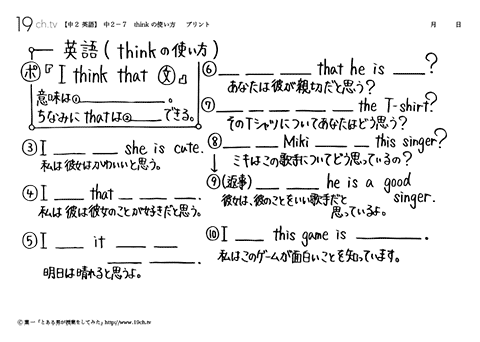 19 ch.tv 【中2 英語】 中2-7 think の使い方 プリント 月 日
英語(thinkの使い方)
ポ『I think that 文』
意味は①__________。
ちなみに thatは②______できる。
③ I ____ ____ she is cute.
私は彼女はかわいいと思う。
④ I ____ that ____ ____ ____.
私は彼は彼女のことが好きだと思う。
⑤ I ____ it ____ ____ ____.
明日は晴れると思うよ。
⑥ ____ ____ ____ that he is ____?
あなたは彼が親切だと思う?
⑦ ____ ____ ____ ____ ____ the T-shirt?
そのTシャツについてあなたはどう思う?
⑧ ____ ____ Miki ____ ____ this singer?
ミキはこの歌手についてどう思っているの?
⑨(返事) ____ ____ he is a good singer.
彼女は、彼のことをいい歌手だと思っているよ。
⑩ I ____ this game is ________.
私はこのゲームが面白いことを知っています。
© 葉一「とある男が授業をしてみた」http://www.19ch.tv